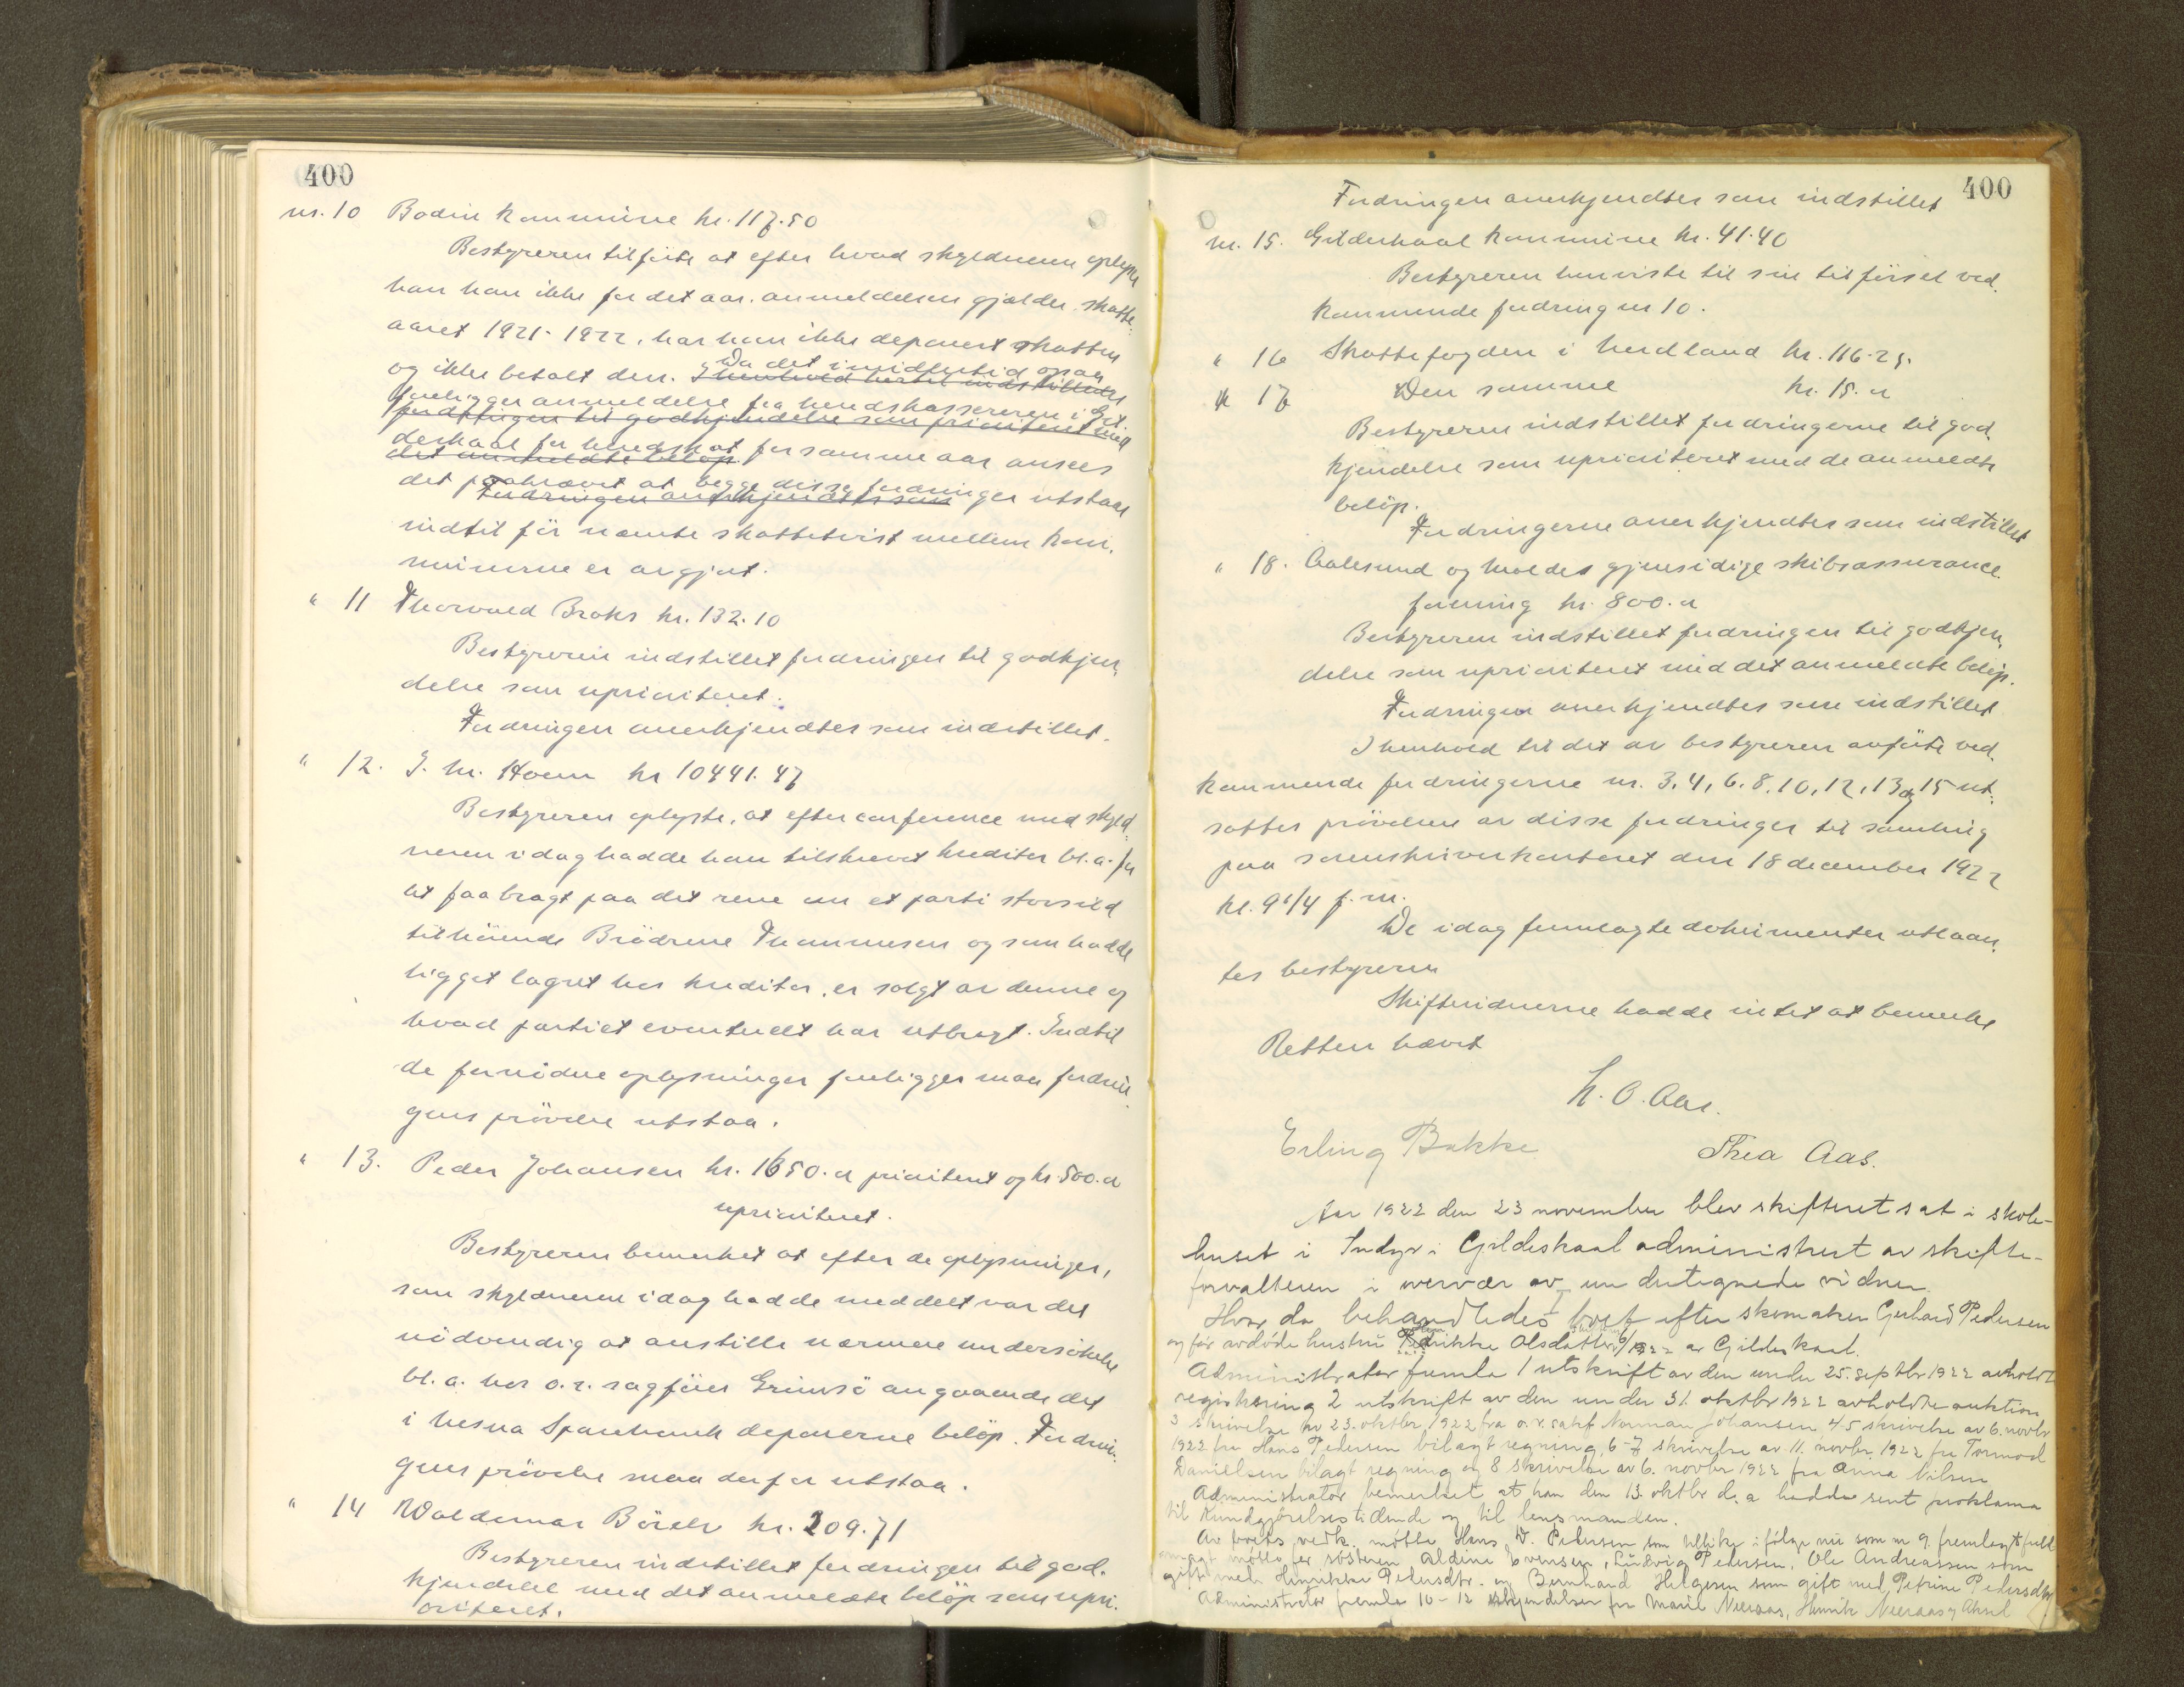 400
nr. 10 Bodin kommune kr. 117.50
Bestyreren tilføiet at efter hvad skyldneren oplyste
har han ikke for det aar. anmeldelsen gjælder. skatte-
aaret 1921-1922. har han ikke deponert skatten
og ikke betalt den. Da det imidlertid ogsaa
I henhold hertil indstilledes
foreligger anmeldelse fra herredskassereren i Gil-
fordringen til godkjendelse som prioritert med
deskaal for herredskat for samme aar ansees
det anmeldte beløp.
det paakrævet at begge disse fordringer utstaar
Fordringen anerkjendtes som
indtil før nævnte skattetvist mellem kom-
munerne er avgjort.
" 11 Thorvald Broks kr. 132.10
Bestyreren indstillet fordringen til godkjen-
delse som uprioritert.
Fordringen anerkjendtes som indstillet.
" 12. J. M. Hoem kr 10441.47
Bestyreren oplyste, at efter conference med skyld-
neren idag hadde han tilskrevet kreditor bl.a. for
at faa bragt paa det rene om et parti storsild
tilhørende Brødrene Thommesen og som hadde
ligget lagret hos kreditor, er solgt av denne og
hvad partiet eventuelt har utbragt. Indtil
de fornødne oplysninger foreligger maa fordrin-
gens prøvelse utstaa.
" 13. Peder Johansen kr. 1650.00 prioritert og kr. 500.00
uprioritert.
Bestyreren bemerket at efter de oplysninger,
som skyldneren idag hadde meddelt var det
nødvendig at anstille nærmere undersøkelse
bl.a. hos o.r. sagfører Grimsø angaaende det
i Nesna Sparebank deponerte beløp. Fordrin-
gens prøvelse maa derfor utstaa.
" 14 Waldemar Børseth kr. 209.71
Bestyreren indstillet fordringen til god-
kjendelse med det anmeldte beløp som upri-
oritert.
400
Fordringen anerkjendtes som indstillet
nr. 15. Gildeskaal kommune kr. 41.40
Bestyreren henviste til sin tilførsel ved-
kommende fordring nr 10.
" 16 Skattefogden i Herdland kr. 116.25.
" 17 Den samme kr. 15.00
Bestyreren indstillet fordringerne til god-
kjendelse som uprioritert med de anmeldte
beløp.
Fordringerne anerkjendtes som indstillet
" 18. Aalesund og Moldes gjensidige skibsassurance-
forening kr. 800.00
Bestyreren indstillet fordringen til godkjen-
delse som uprioritert med det anmeldte beløp.
Fordringen anerkjendtes som indstillet
I henhold til det av bestyreren anførte ved-
kommende fordringerne nr. 3, 4, 6, 8, 10, 12, 13 og 15 ut-
sattes prøvelsen av disse fordringer til samling
paa sorenskriverkontoret den 18 december 1922
kl. 9 1/4 f.m.
De idag fremlagte dokumenter utlaan-
tes bestyreren
Skiftevidnerne hadde intet at bemerke
Retten hævet
K. O. Aas.
Erling Bakke Thea Aas.
Aar 1922 den 23 november blev skifteret sat i skole-
huset i Indyr i Gildeskaal administrert av skifte-
forvalteren i overvær av undertegnede vidner.
Hvor da behandledes boet efter skomaker Gerhard Pedersen
og før avdøde hustru Olsdatter av Gildeskaal.
Administrator fremla 1 utskrift av den under 25. septbr 1922 avholdt
registrering 2 utskrift av den under 31. oktbr 1922 avholdte auktion
3 skrivelse av 23. oktbr. 1922 fra o.r. sakf Norman Johansen, 4/5 skrivelse av 6. novbr
1922 fra Hans Pedersen bilagt regning, 6-7 skrivelse av 11. novbr. 1922 fra Tormod
Danielsen bilagt regning og 8 skrivelse av 6. novbr 1922 fra Anna Nilsen
Administrator bemerket at han den 13 oktbr d.a hadde sent proklama
til Kundgjørelsestidende og til lensmanden.
Av boets vedk. møtte Hans D. Pedersen som tillike ifølge nu som nr 9 fremlagt full-
magt møtte for søsteren Aldine Evensen, Ludvig Pedersen, Ole Andreassen som
gift med Henrikke Pedersdtr. og Bernhard Helgesen som gift med Petrine Pedersdtr
Administrator fremla 10-12 erkjendelser fra Marie Nieraas, Henrik Nieraas og Aksel